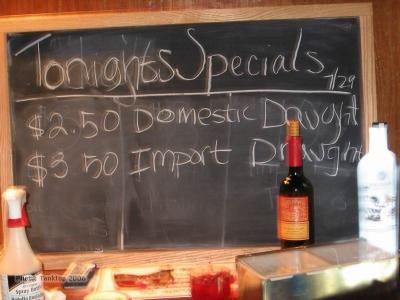 Tonights Specials
7/29
$2.50 Domestic Daught
$3.50 Import Draught
Photo: Tanktop 2006
Spray Bottle